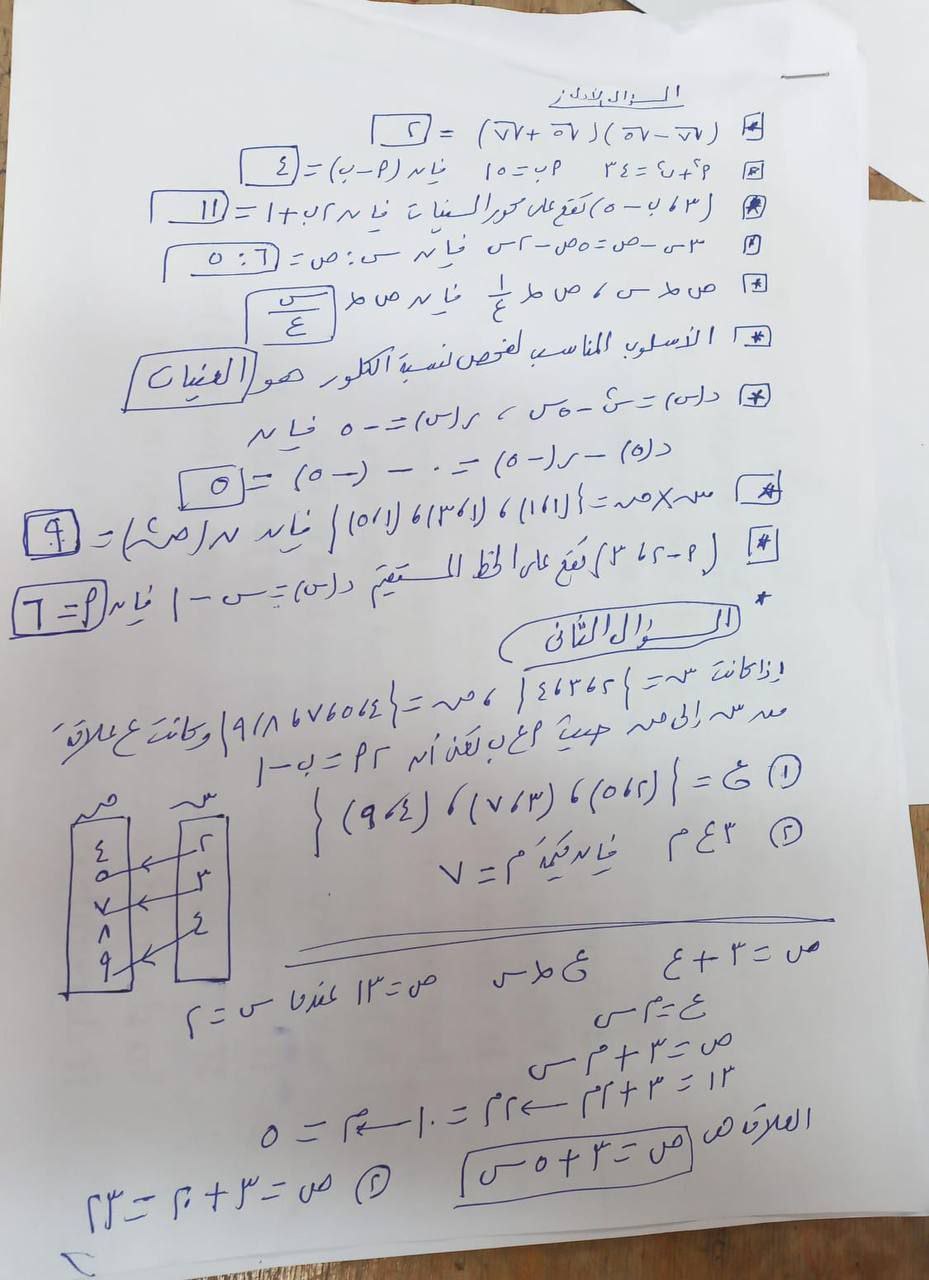 السؤال الأول:
* (√٧ − √٥)(√٥ + √٧) = ٢
* ٢أ + ٢ب = ٣٤ أب = ١٥ فإن (أ − ب) = ٤
* (٣ ، ب − ٥) تقع على محور السينات فإن ٢ب + ١ = ١١
* ٣س − ص = ٥ص − ٢س فإن س : ص = ٦ : ٥
* ص ط س ، ص ط ١/ع فإن ص ط س/ع
* الأسلوب المناسب لفحص نسبة الكلور هو العينات
* د(س) = س² − ٥س ، ر(س) = −٥ فإن
د(٥) − ر(−٥) = ٠ − (−٥) = ٥
* س × ص = {(١،١) ، (١،٣) ، (١،٥)} فإن ن(ص²) = ٩
* (أ − ٢ ، ٣) تقع على الخط المستقيم د(س) = س − ١ فإن أ = ٦
*
السؤال الثاني
إذا كانت س = {٢،٣،٤} ، ص = {٤،٥،٧،٨،٩} وكانت ع علاقة
من س إلى ص حيث أ ع ب تعني أن ٢أ = ب − ١
① ع = {(٢،٥) ، (٣،٧) ، (٤،٩)}
س ص
٢ ٤
٣ ٥
٤ ٧
٨
٩
② ٣ ع م فإن قيمة م = ٧
ص = ٣ + ع ع ط س ص = ١٣ عندما س = ٢
ع = م س
ص = ٣ + م س
١٣ = ٣ + ٢م ← ٢م = ١٠ ← م = ٥
العلاقة هى ص = ٣ + ٥س ② ص = ٣ + ٢٠ = ٢٣